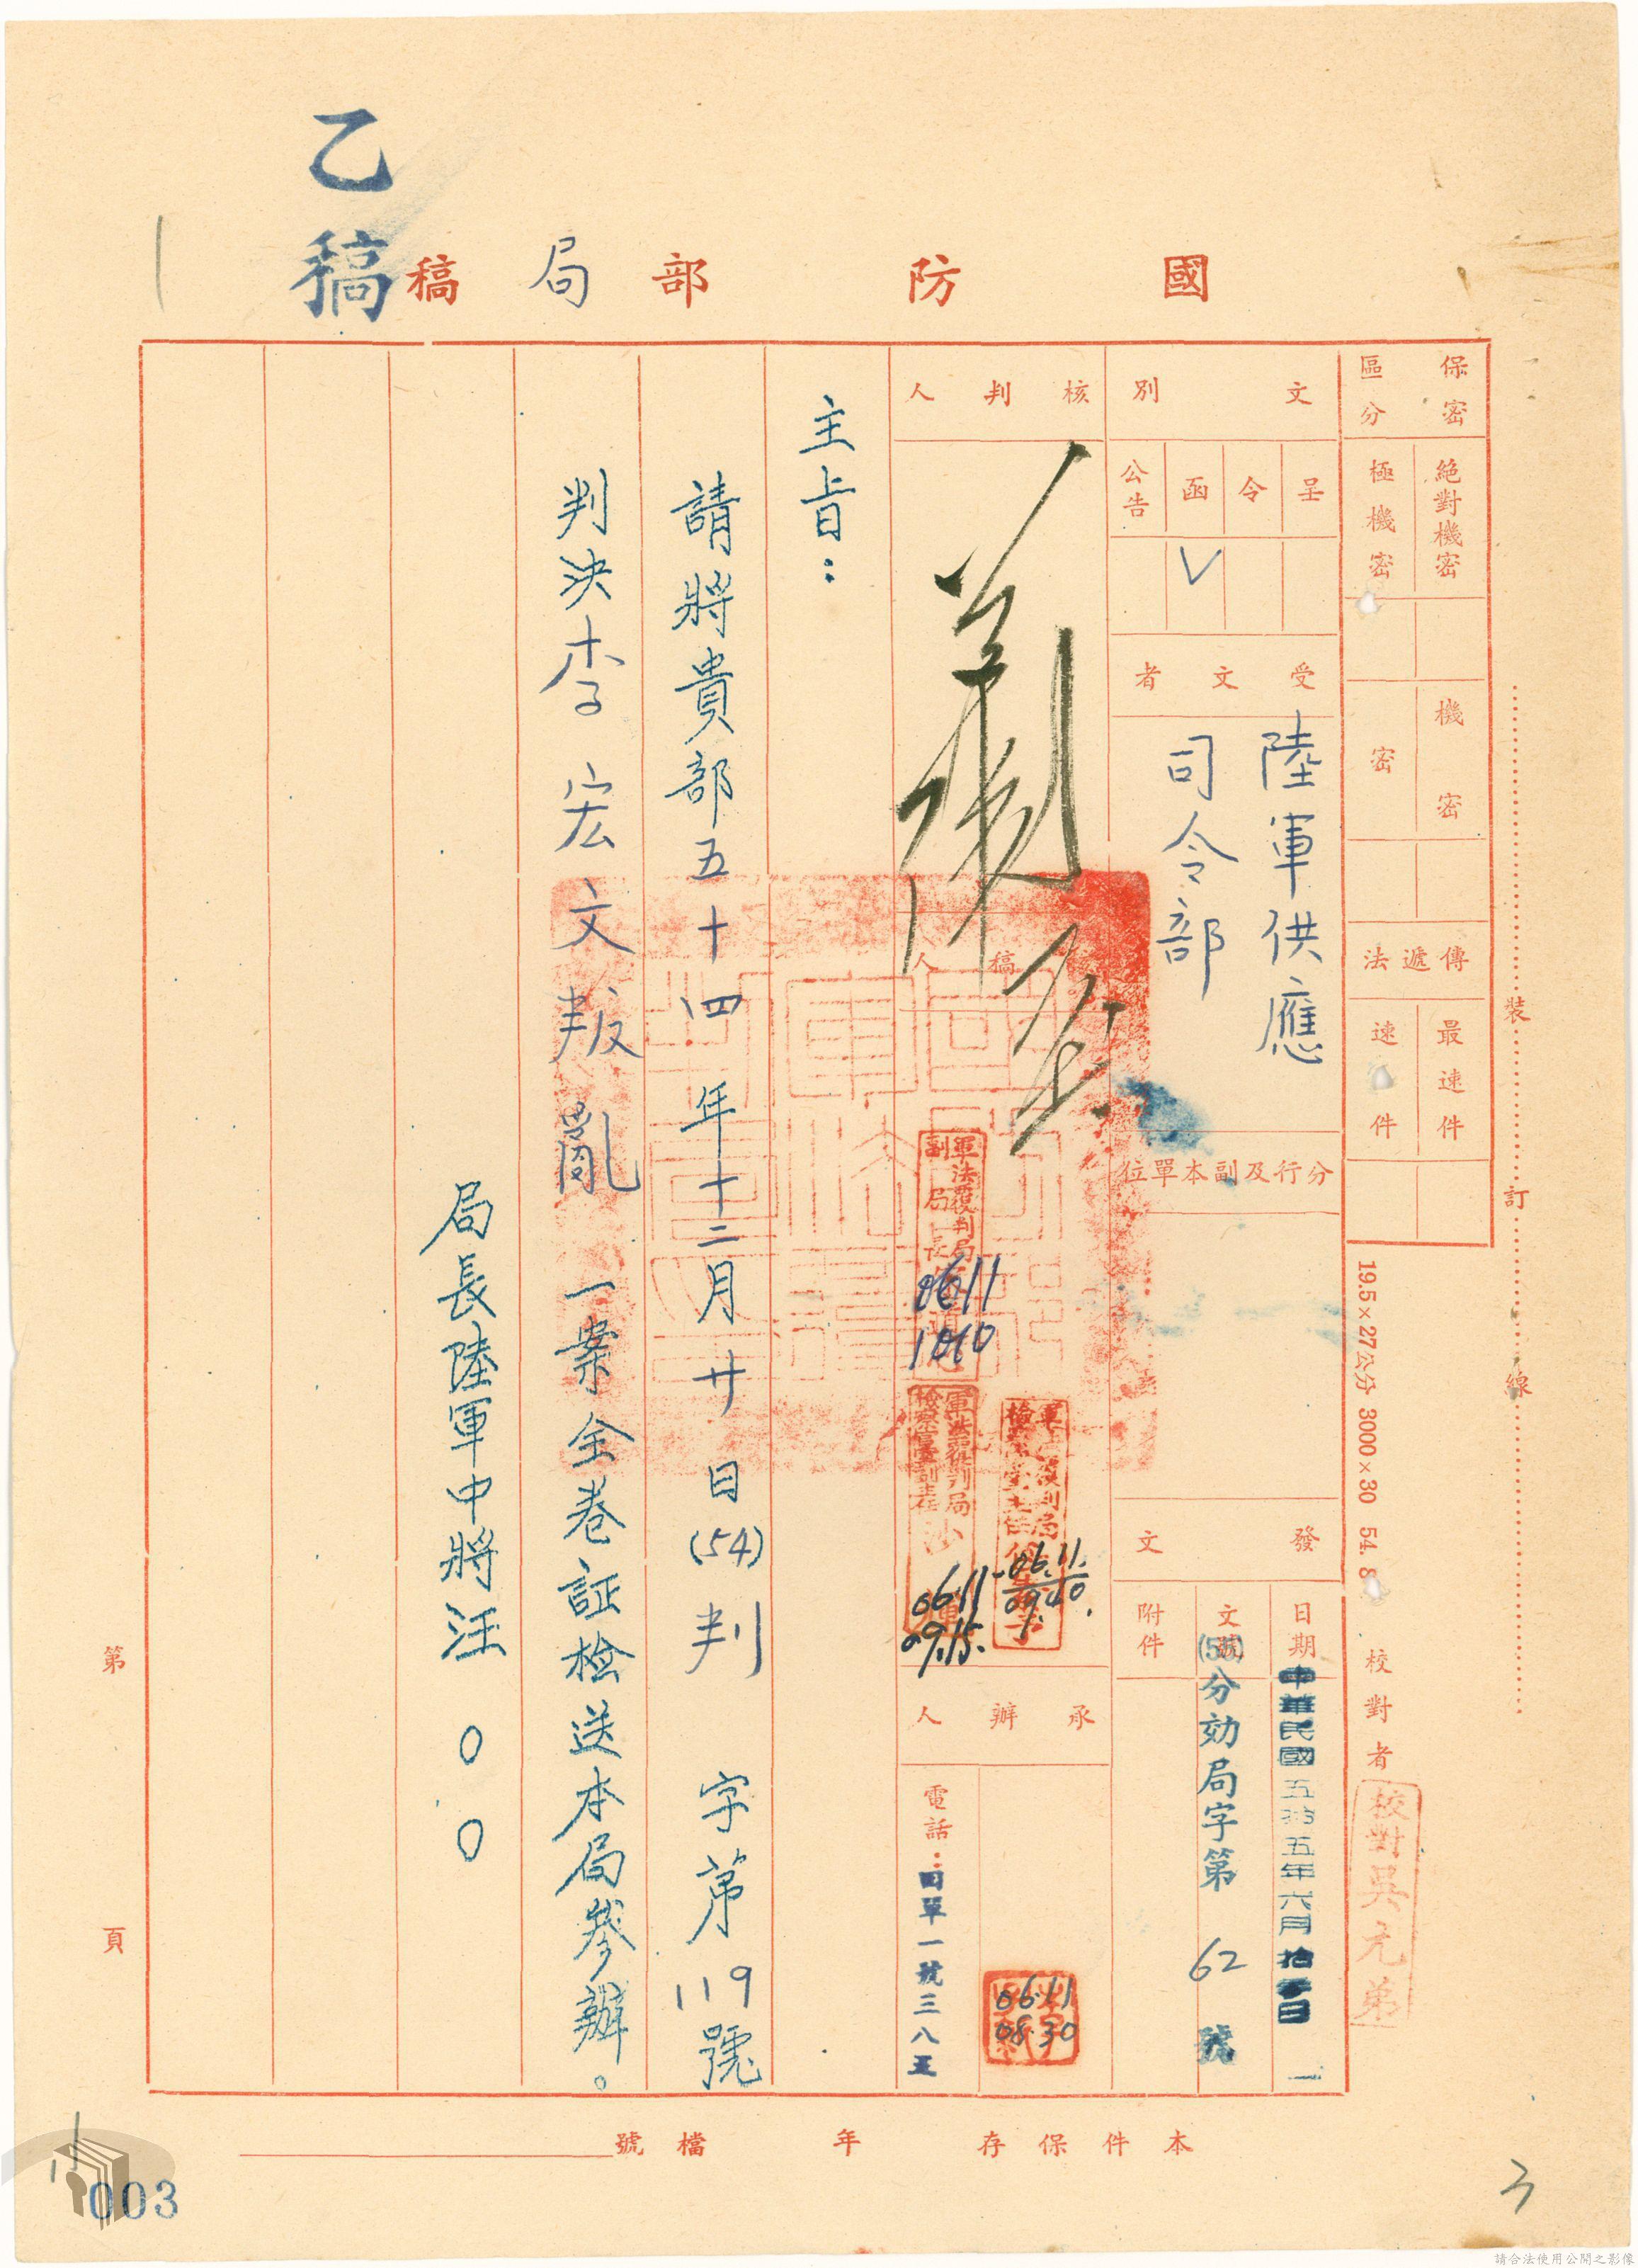 乙稿
國防部局稿
保密區分
絕對機密
極機密
機密
傳遞法
最速件
速件
19.5×27公分 3000×30 54. 8
校對者
校對吳元弟
裝訂線
文別
呈
令
函
公告
V
受文者
陸軍供應
司令部
分行及副本單位
發文
日期
中華民國五拾五年六月拾
文號
(55)分効局字第62號
附件
核判人
稿人
軍法覆判局
副局長
0611
1010
軍法覆判局
檢察官
06.11.
09.40.
0611
09.15.
承辦人
06.11
08.30
電話:
田單一號三八五
主旨:
請將貴部五十四年十二月廿日(54)判字第119號
判決李宏文叛亂一案全卷証檢送本局參辦。
局長陸軍中將汪○○
第頁
本件保存年檔號
003
3
請合法使用公開之影像